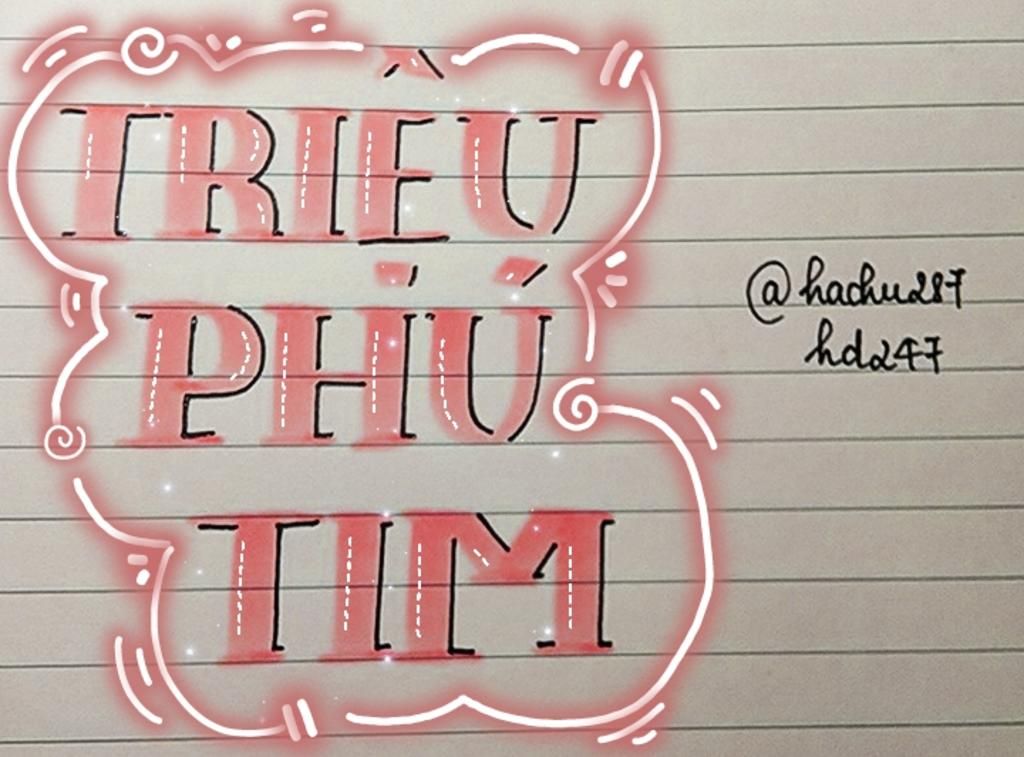 TRIỆU
PHÚ
TIM
@hachu287
hd247